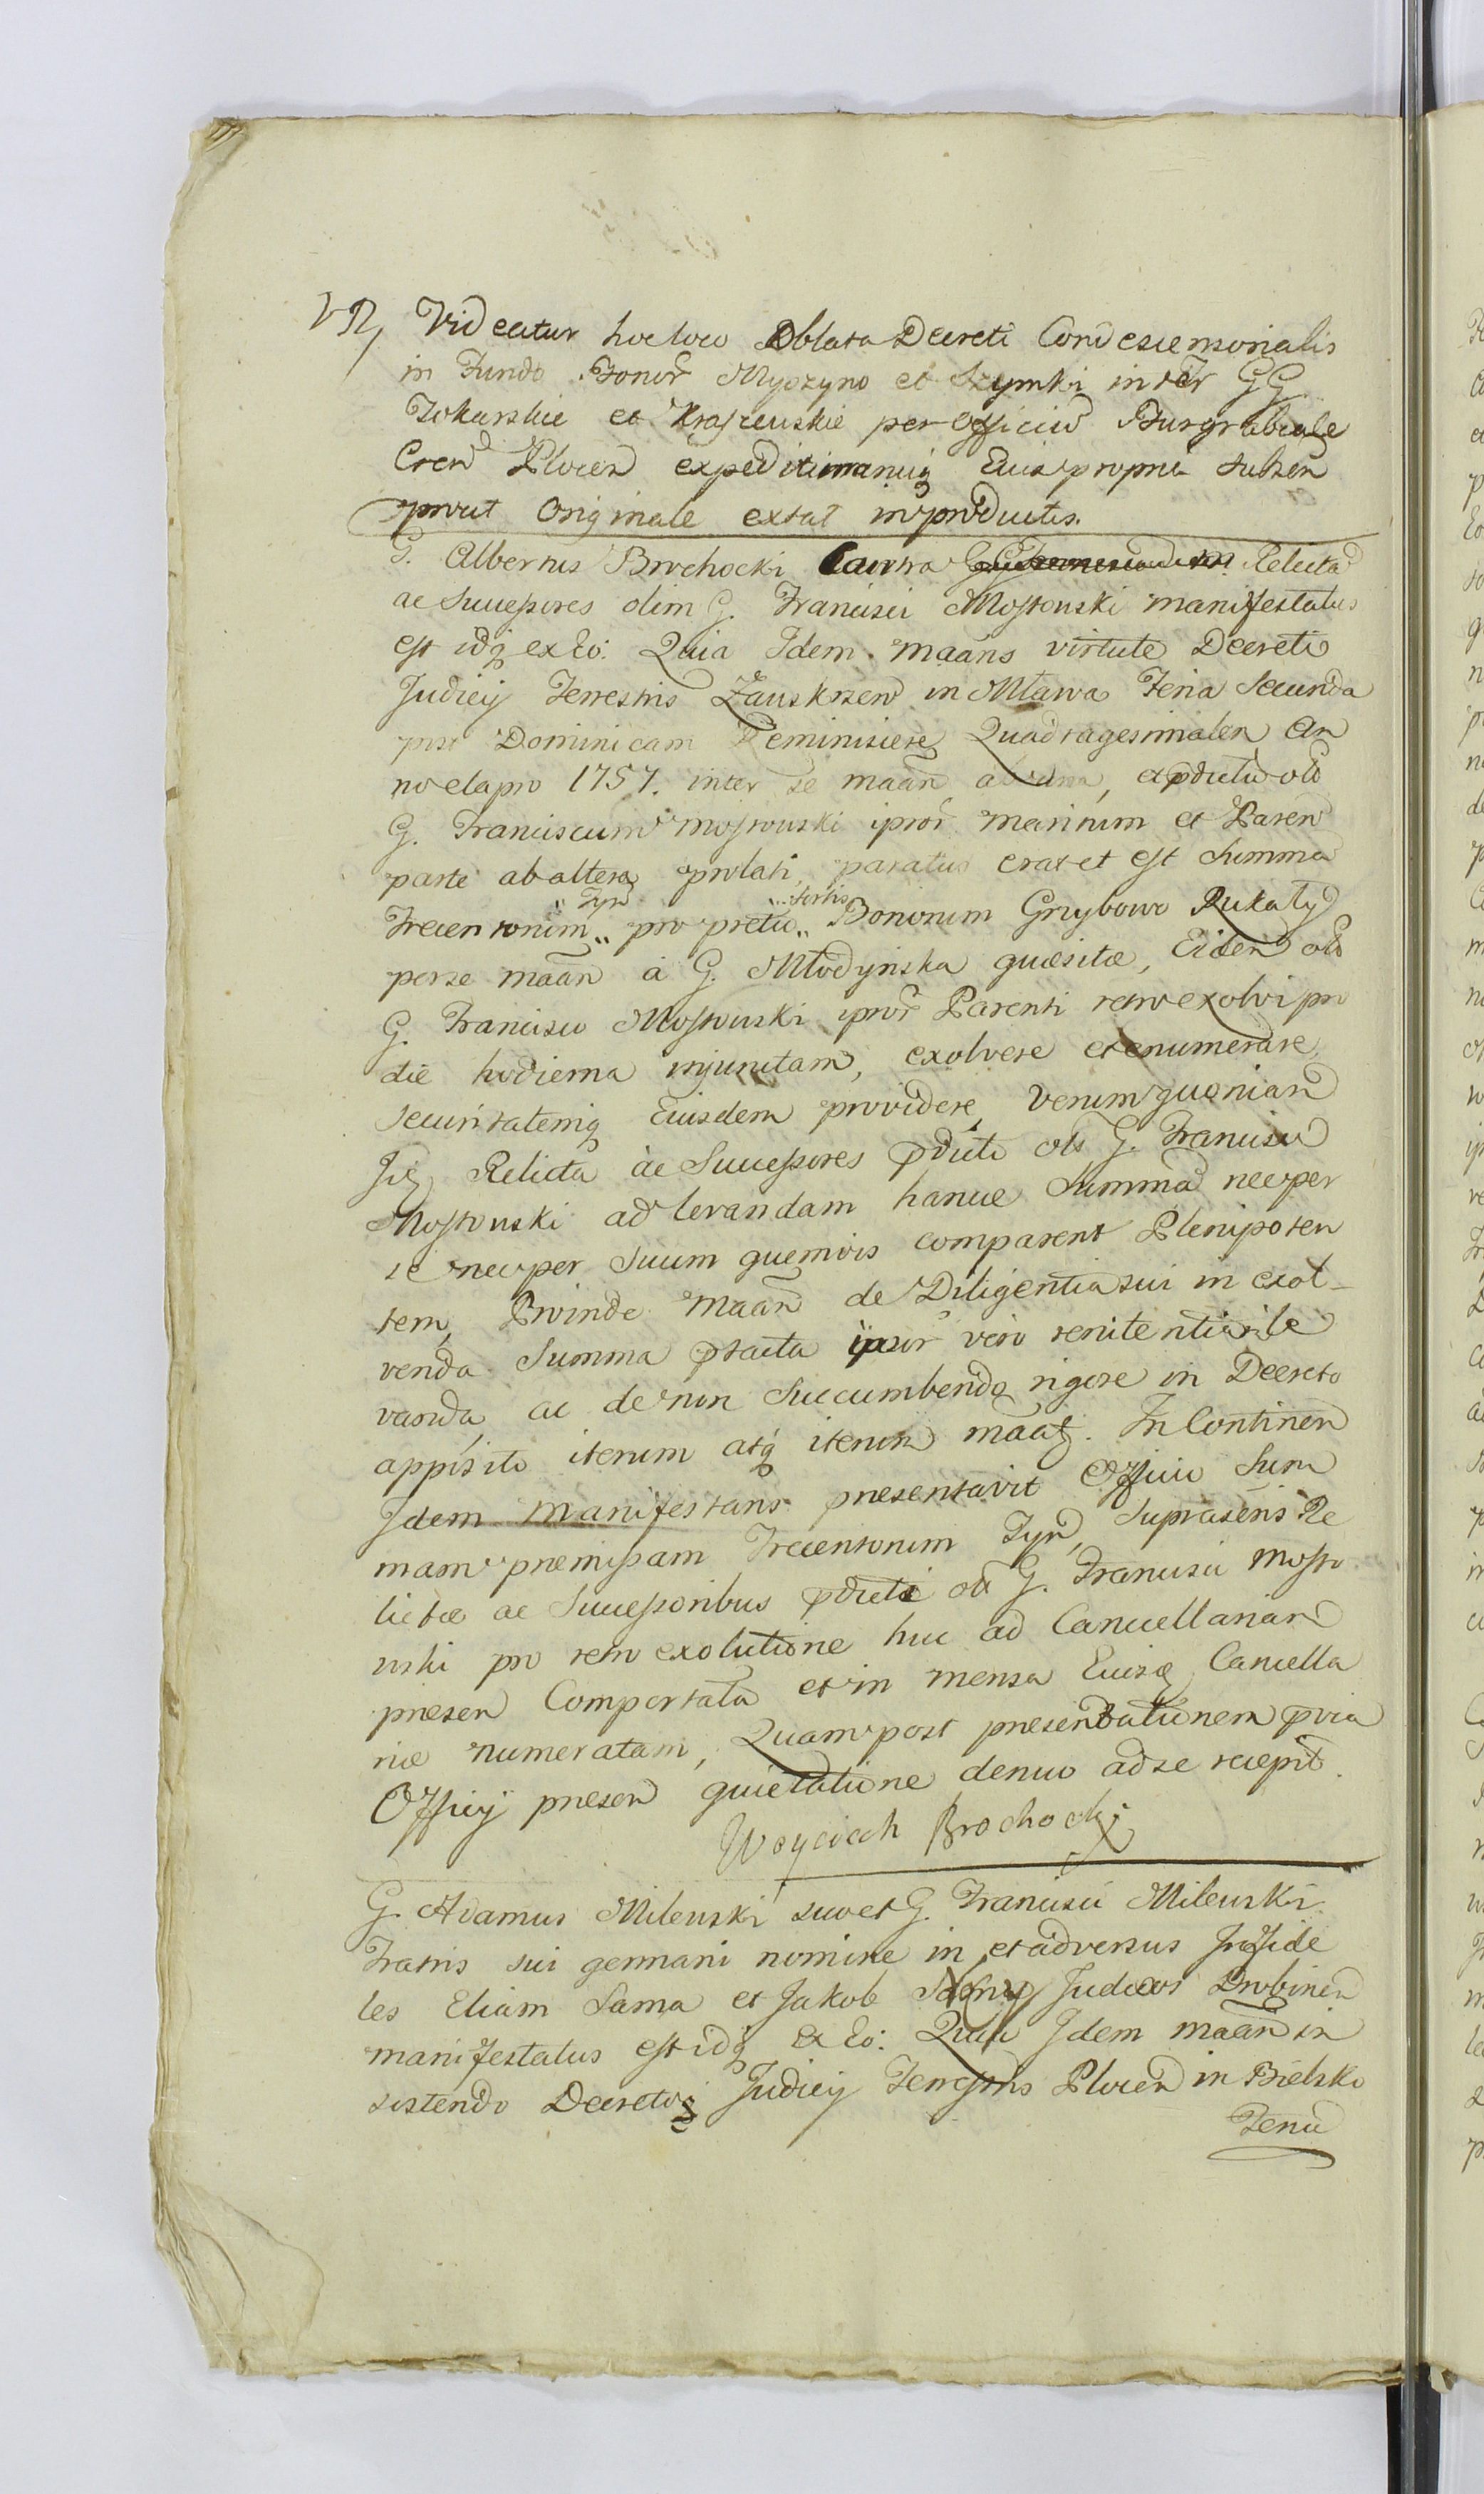 VR, Videatur hocloco Oblata Decreti Condescensorialis
in Fundo Bonor̃ Myszyno et Szymki inter GG
Tokarskie et Kraszewskie per Officiũ Burgrabiale
Cren̄ Plocen̄ expediti manuiq̨ Eius propria Subscr̄
prout Originale extat in productis.
G. Albertus Brochocki Contra Relictã
ac Successores olim G. Francisci Mostowski manifestatus
est idq̨ ex Eo: Quia Idem maãns virtute Decreti
Judicij Terrestris Zauskrzen̄ in Mława Feria Secunda
post Dominicam Reminiscere Quadragesimalem An
no elapso 1757. inter se maãn̄ ab una, et pdictũ olo
G. Franciscum Mostowski ipsor̃ maritum et Paren̄
parte ab altera prolati, paratus erat et est Summã
Trecentorum „Tyn̄„ pro pretio „Sortis„ Bonorum Grzybowo Rukały
per se maãn̄ a G. Młodyńska quæsitæ, Eidem olo
G. Francisco Mostowski ipsor̃ Parenti retro exolvi pro
die hodierna injunctam, exolvere et enumerare,
securitatemq̨ Eiusdem providere, verum quoniam
Relicta ac Successores pdicti olo G. Francisci
Mostowski ad levandam hance Summã nec per
se nec per Suum quemvis comparent Plenipoten
tem, Proinde maãn̄ de Diligentia sui in exol-
venda Summa ptacta ipsor̃ vero renitentia in le
vanda, ac de non Succumbendo rigore in Decreto
apposito iterum atq̨ iterum maãt. In Continen̄
Idem manifestans presentavit Officio Sum
mam premissam Trecentorum Tyn̄, Suprascr̄is Re
lictæ ac Successoribus pdicti olo G. Francisci Mosto
wski pro retro exolutione huc ad Cancellariam
presen̄ Comportatã et in mensa Eiusq̨ Cancella
riæ numeratam, Quam post presentationem pvia
Officij presen̄ quietatione denuo ad se recepit.
Woyciech Brochocki
G. Adamus Milewski suo et G. Francisci Milewski
Fratris sui germani nomine in et adversus Infide
les Eliam Sama et Jakob Judæos Drobinen̄
manifestatus est idq̨ Ex Eo: Quia Idem maãn̄ in
sistendo Decreto Judicij Terrestris Plocen̄ in Bielsko
Feriã